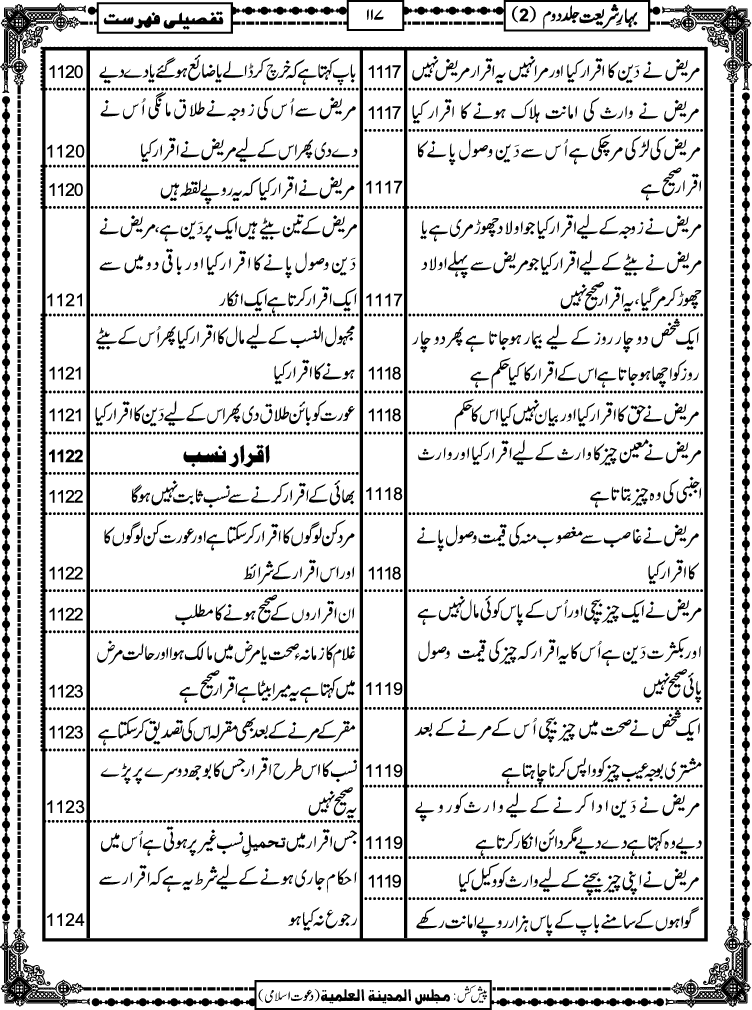 بہارِ شریعت جلد دوم (2)
۱۱۷
تفصیلی فہرست
مریض نے دَین کا اقرار کیا اور مرا نہیں یہ اقرار مریض نہیں 1117
مریض نے وارث کی امانت ہلاک ہونے کا اقرار کیا 1117
مریض کی لڑکی مرچکی ہے اُس سے دَین وصول پانے کا
اقرار صحیح ہے 1117
مریض نے زوجہ کے لیے اقرار کیا جو اولاد چھوڑ مری ہے یا
مریض نے بیٹے کے لیے اقرار کیا جو مریض سے پہلے اولاد
چھوڑ کر مر گیا، یہ اقرار صحیح نہیں 1117
ایک شخص دو چار روز کے لیے بیمار ہوجاتا ہے پھر دو چار
روز کو اچھا ہوجاتا ہے اس کے اقرار کا کیا حکم ہے 1118
مریض نے حق کا اقرار کیا اور بیان نہیں کیا اس کا حکم 1118
مریض نے معین چیز کا وارث کے لیے اقرار کیا اور وارث
اجنبی کی وہ چیز بتاتا ہے 1118
مریض نے غاصب سے مغصوب منہ کی قیمت وصول پانے
کا اقرار کیا 1118
مریض نے ایک چیز بیچی اور اُس کے پاس کوئی مال نہیں ہے
اور بکثرت دَین ہے اُس کا یہ اقرار کہ چیز کی قیمت وصول
پائی صحیح نہیں 1119
ایک شخص نے صحت میں چیز بیچی اُس کے مرنے کے بعد
مشتری بوجہ عیب چیز کو واپس کرنا چاہتا ہے 1119
مریض نے دَین ادا کرنے کے لیے وارث کو روپے
دیے وہ کہتا ہے دے دیے مگر دائن انکار کرتا ہے 1119
مریض نے اپنی چیز بیچنے کے لیے وارث کو وکیل کیا 1119
گواہوں کے سامنے باپ کے پاس ہزار روپے امانت رکھے
باپ کہتا ہے کہ خرچ کر ڈالے یا ضائع ہوگئے یا دے دیے 1120
مریض سے اُس کی زوجہ نے طلاق مانگی اُس نے
دے دی پھر اس کے لیے مریض نے اقرار کیا 1120
مریض نے اقرار کیا کہ یہ روپے لقطہ ہیں 1120
مریض کے تین بیٹے ہیں ایک پر دَین ہے، مریض نے
دَین وصول پانے کا اقرار کیا اور باقی دو میں سے
ایک اقرار کرتا ہے ایک انکار 1121
مجہول النسب کے لیے مال کا اقرار کیا پھر اُس کے بیٹے
ہونے کا اقرار کیا 1121
عورت کو بائن طلاق دی پھر اس کے لیے دَین کا اقرار کیا 1121
اقرار نسب 1122
بھائی کے اقرار کرنے سے نسب ثابت نہیں ہوگا 1122
مرد کن لوگوں کا اقرار کرسکتا ہے اور عورت کن لوگوں کا
اور اس اقرار کے شرائط 1122
ان اقراروں کے صحیح ہونے کا مطلب 1122
غلام کا زمانۂ صحت یا مرض میں مالک ہوا اور حالت مرض
میں کہتا ہے یہ میرا بیٹا ہے اقرار صحیح ہے 1123
مقر کے مرنے کے بعد بھی مقرلہ اس کی تصدیق کرسکتا ہے 1123
نسب کا اس طرح اقرار جس کا بوجھ دوسرے پر پڑے
یہ صحیح نہیں 1123
جس اقرار میں تحمیلِ نسب غیر پر ہوتی ہے اُس میں
احکام جاری ہونے کے لیے شرط یہ ہے کہ اقرار سے
رجوع نہ کیا ہو 1124
پیش کش: مجلس المدینۃ العلمیۃ (دعوت اسلامی)